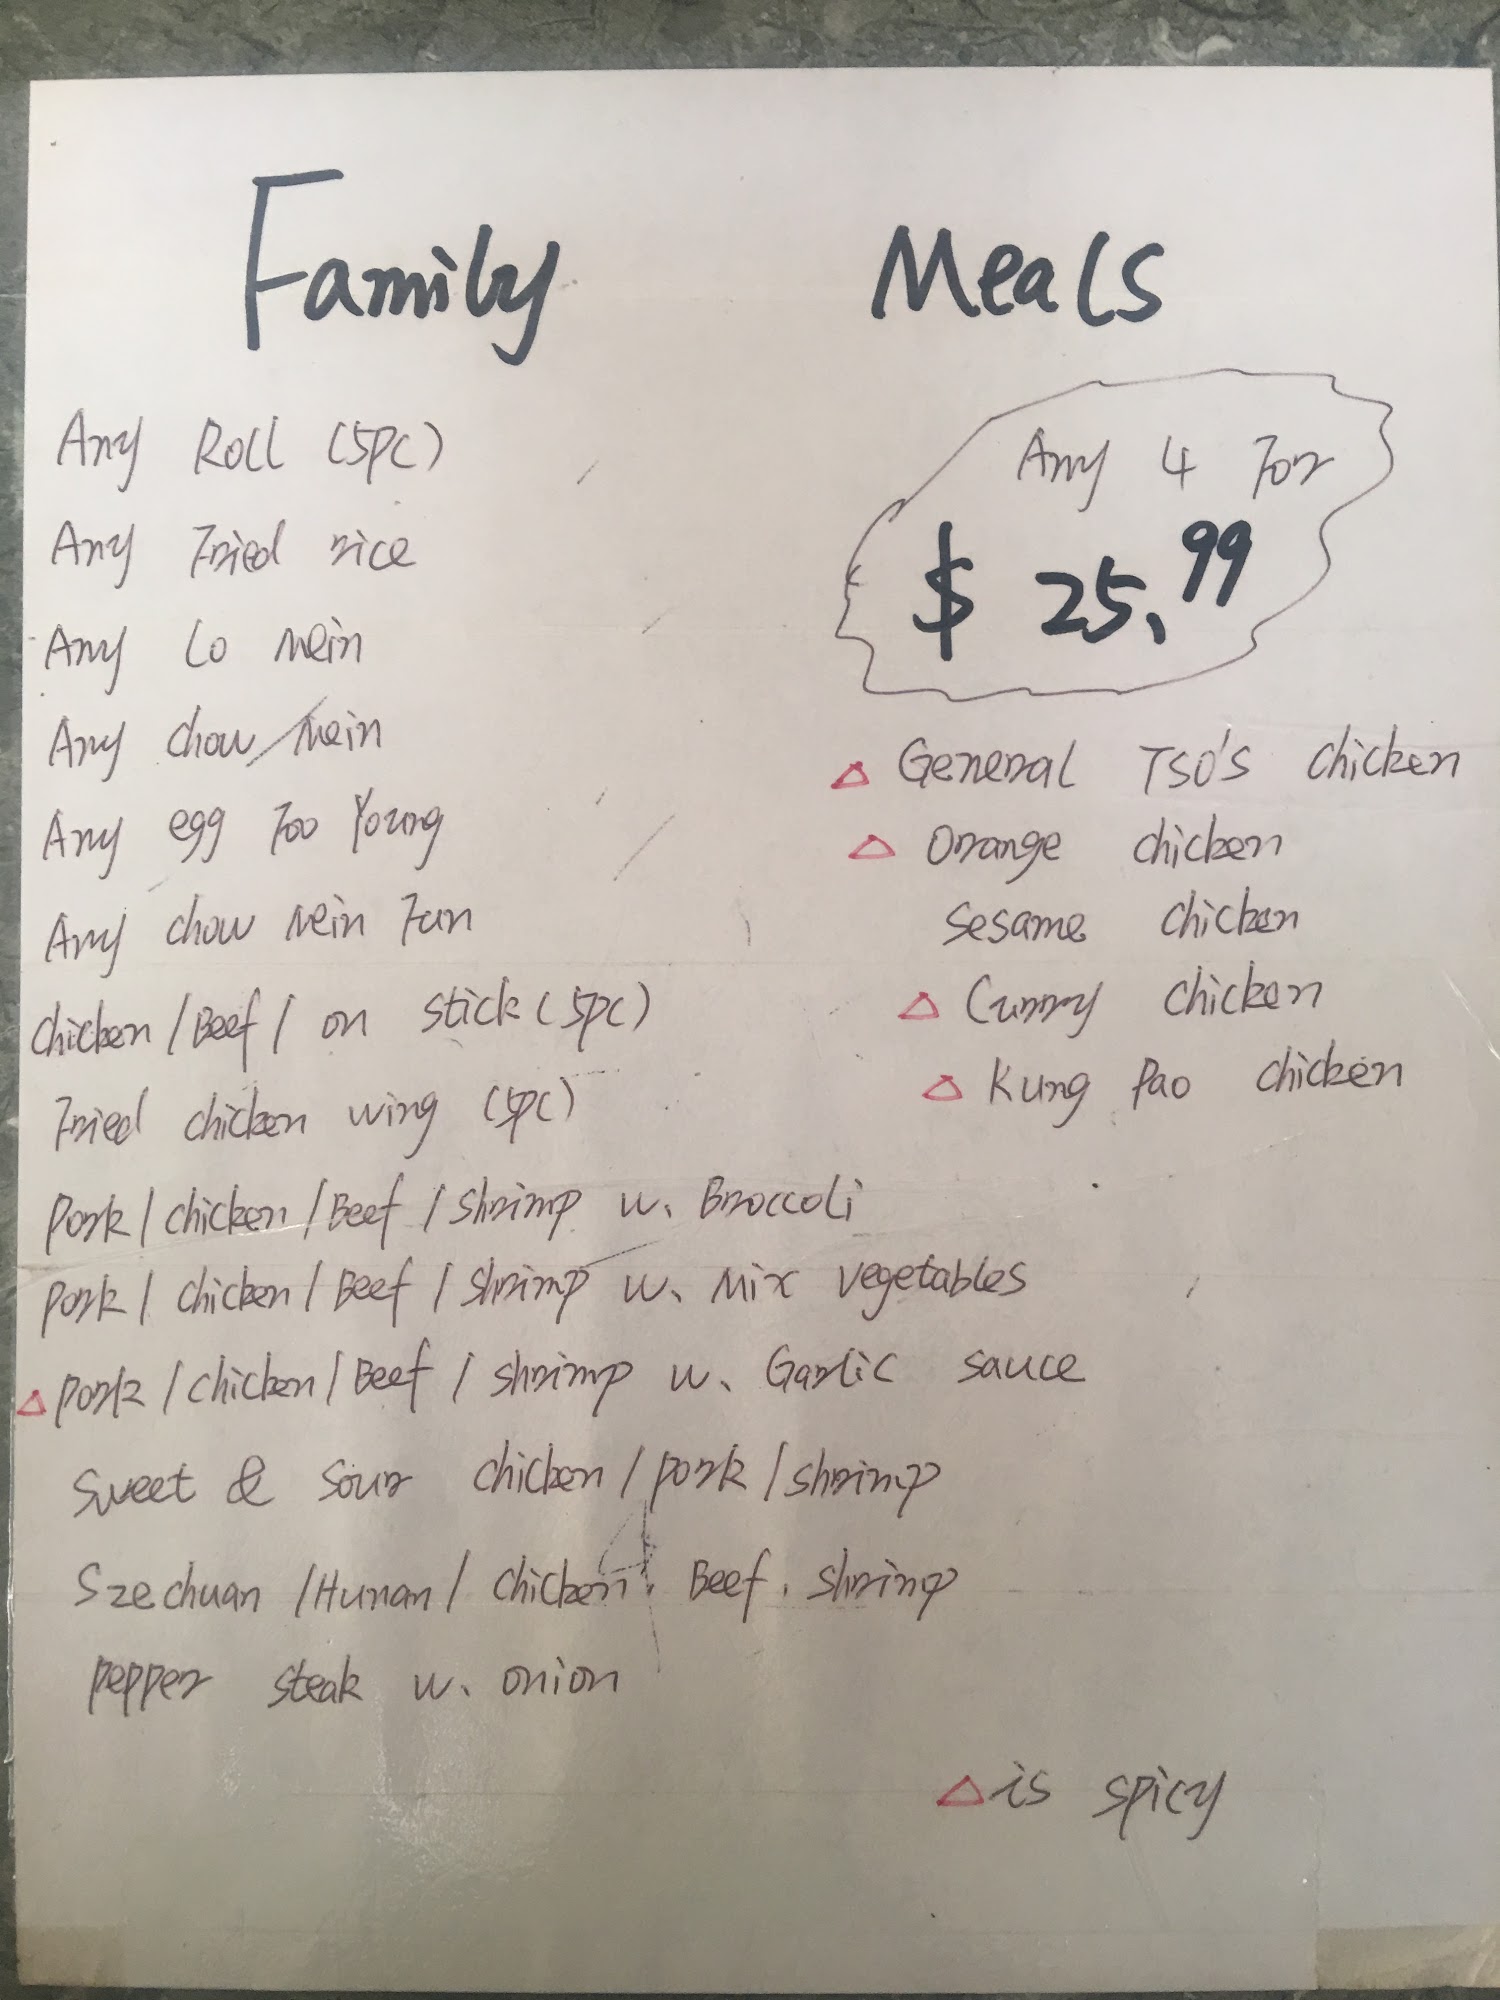 Family Meals
Any Roll (5pc)
Any Fried rice
Any Lo Mein
Any chow Mein
Any egg Foo Young
Any chow Mein Fun
chicken/Beef/ on stick (5pc)
Fried chicken wing (5pc)
Pork/chicken/Beef/shrimp w. Broccoli
Pork/chicken/Beef/shrimp w. Mix vegetables
△ Pork/chicken/Beef/shrimp w. Garlic sauce
Sweet & Sour chicken/pork/shrimp
Szechuan/Hunan/chicken. Beef. shrimp
pepper steak w. onion
Any 4 For
$ 25.99
△ General TSO's chicken
△ Orange chicken
Sesame chicken
△ Curry chicken
△ Kung Pao chicken
△ is spicy